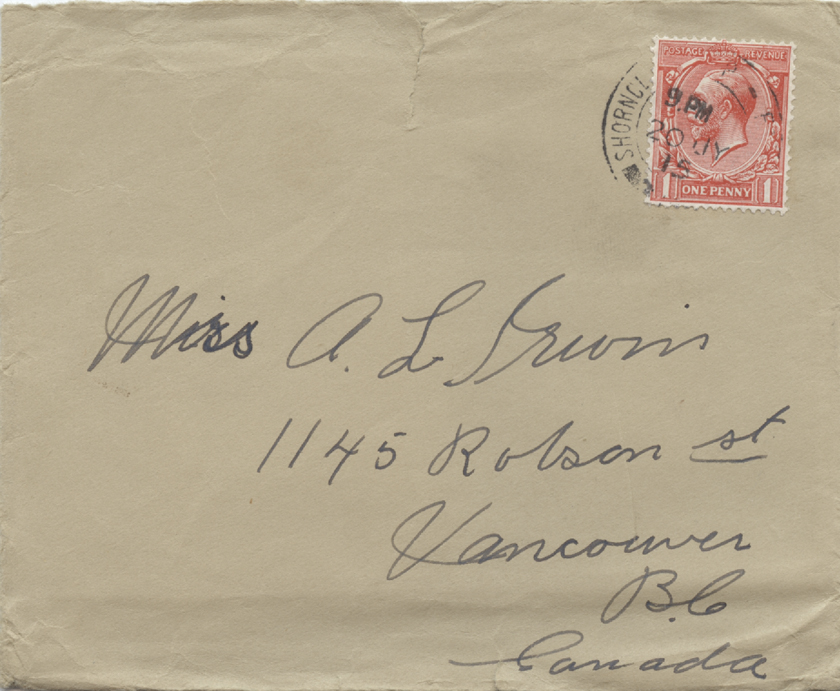 POSTAGE REVENUE
SHORNCL
9. PM
20 JY
15
1 ONE PENNY 1
Miss A. L Irwin
1145 Robson st
Vancouver
B.C
Canada